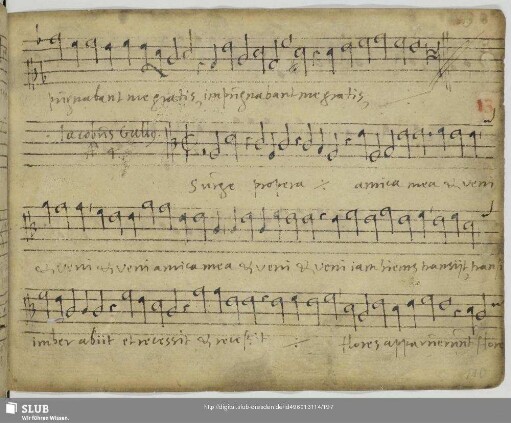 pugnabant me gratis, impugnabant me gratis,
13
Jacobus Gallus.
4
Surge propera ·/· amica mea & veni
& veni & veni amica mea & veni & veni iam hiems transijt, trans
imber abiit et recessit & recessit ·/· flores apparuerunt flore
SLUB
Wir führen Wissen.
http://digital.slub-dresden.de/id